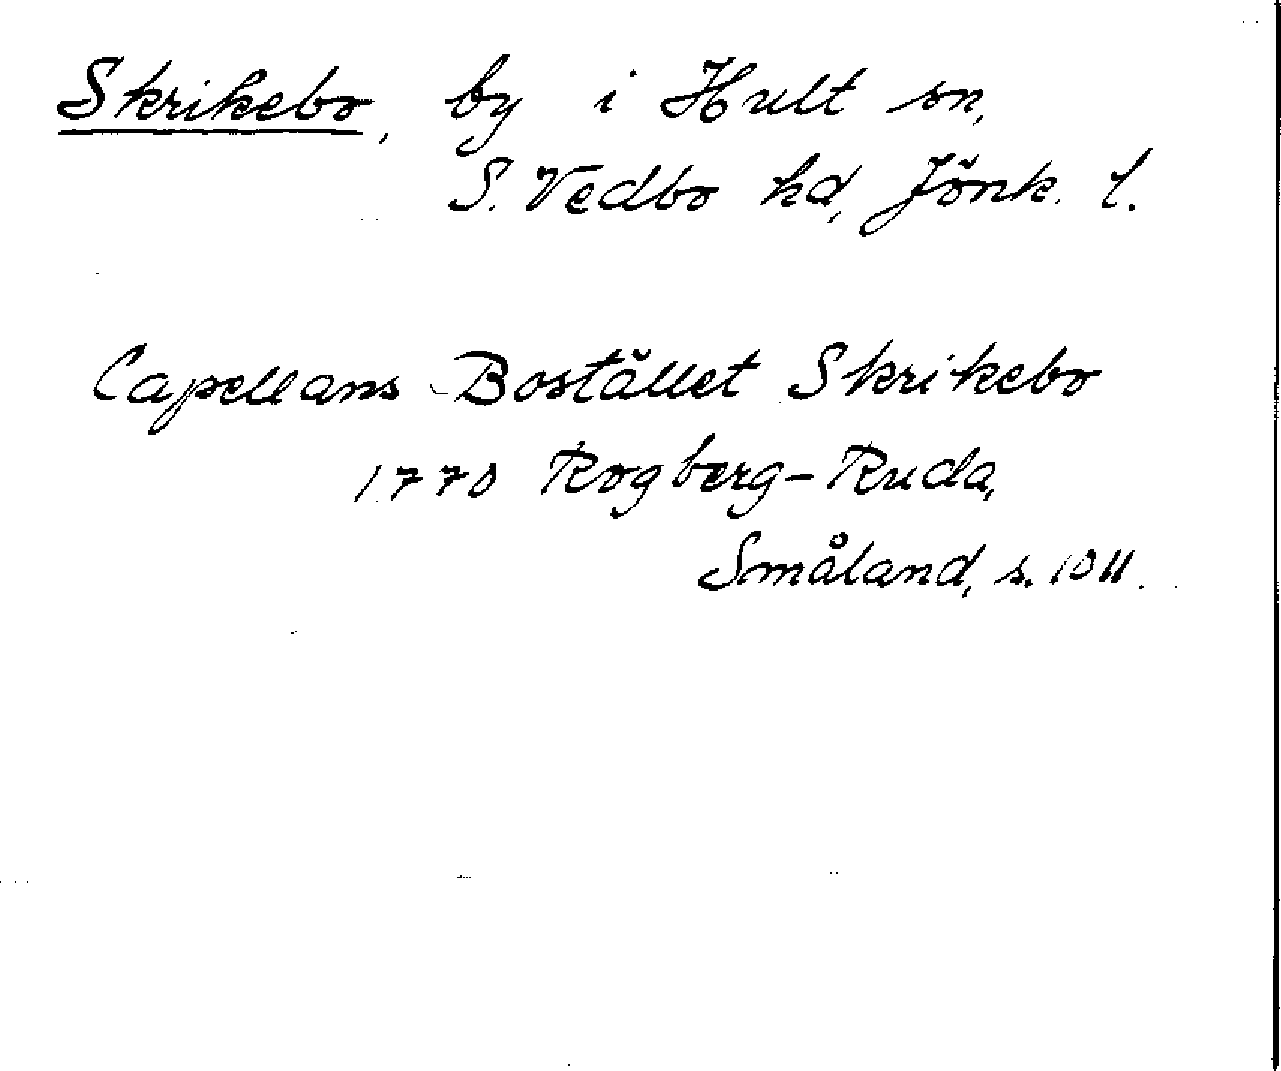 Skrikebo, by i Hult sn,
S. Vedbo hd, Jönk. l.
Capellans Bostället Skrikebo
1770 Rogberg-Ruda,
Småland, s. 1011.